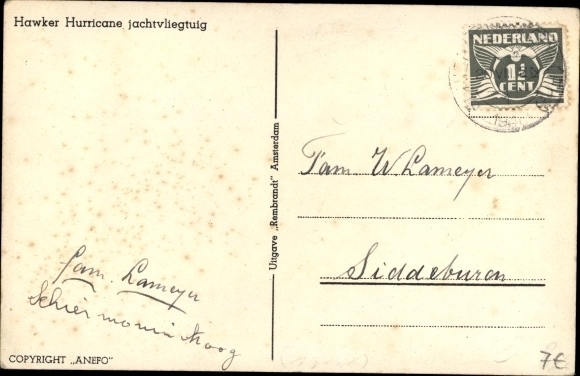 Hawker Hurricane jachtvliegtuig
NEDERLAND
1½
CENT
Fam W Lameyer
Siddeburen
Uitgave „Rembrandt" Amsterdam
fam. Lameyer
Schiermonnikoog
COPYRIGHT „ANEFO"
7€